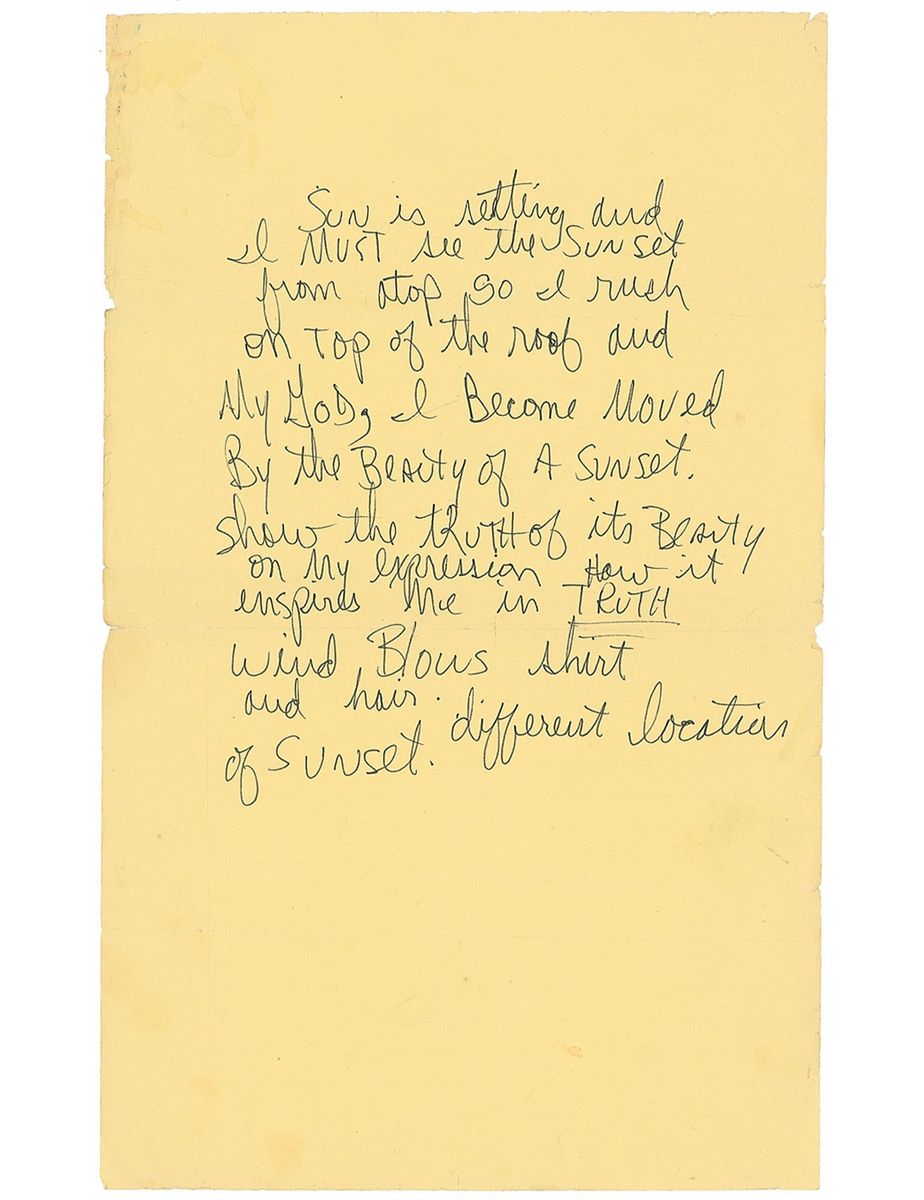 Sun is setting and
I MUST see the Sunset
from atop, so I rush
on Top of the roof and
My GOD, I Become Moved
By the Beauty of A Sunset.
show the tRUTH of its Beauty
on My expression How it
enspires Me in TRUTH
wind Blows shirt
and hair. different location
of Sunset.